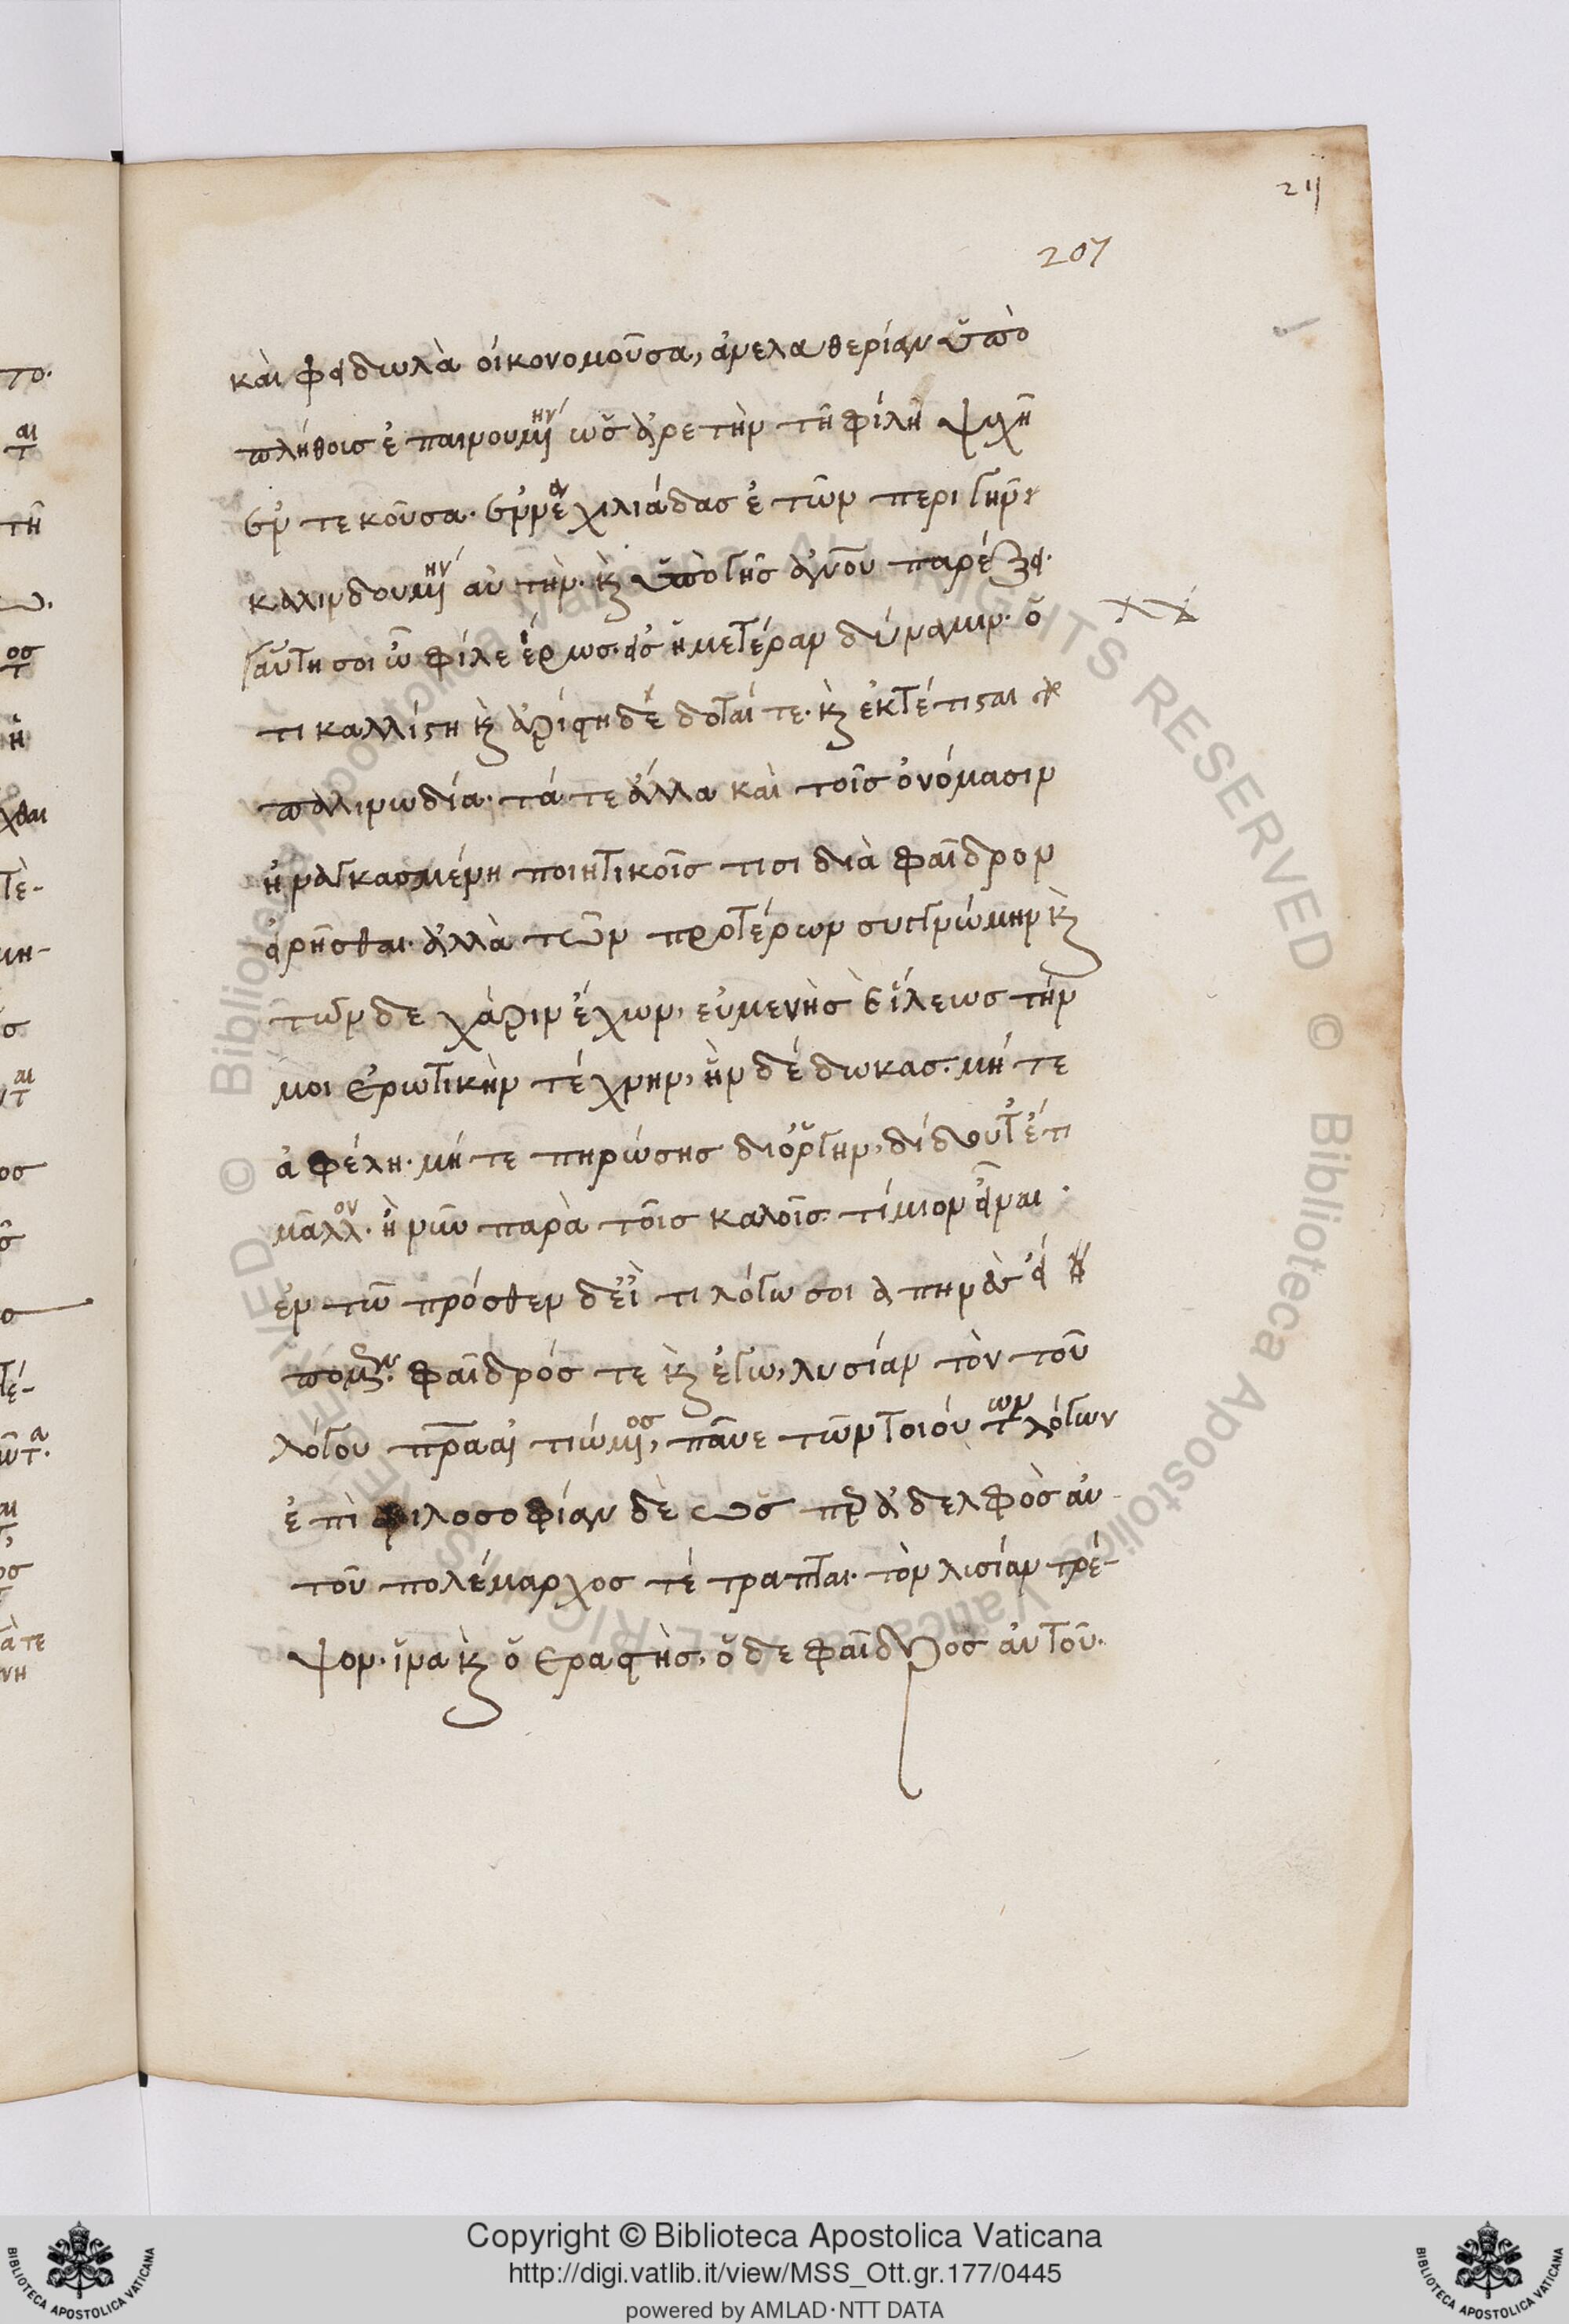 211
207
καὶ φειδωλὰ οἰκονομοῦσα, ἀνελευθερίαν ὑπὸ
πλήθους ἐπαινουμένην ὡς ἀρετὴν τῆ φίλη ψυχῆ
ἐντεκοῦσα. ἐννέα χιλιάδας ἐτῶν περὶ γῆν
καλινδουμένην αὐτὴν. κ ὑπὸ γῆς ἄνουν παρέξει.
αὕτη σοι ὦ φίλε ἔρως. εἰς ἡμετέραν δύναμιν. ὅ
τι καλλίστη κ ἀρίστη δέδοταί τε. κ ἐκτέτισται
παλινωδία. τά τε ἄλλα καὶ τοῖς ὀνόμασιν
ἠναγκασμένη ποιητικοῖς τισι διὰ φαῖδρον
εἰρῆσθαι. ἀλλὰ τῶν προτέρων συγγνώμην κ
τῶνδε χάριν ἔχων, εὐμενὴς ἵλεως τήν
μοι ἐρωτικὴν τέχνην, ἣν δέδωκας. μήτε
ἀφέλη. μήτε πηρώσης δι' ὀργήν, δίδου τ' ἔτι
μᾶλλον. ἢ νῦν παρὰ τοῖς καλοῖς τίμιον εἶναι.
ἐν τῶ πρόσθεν δ' εἴ τι λόγω σοι ἀπηνὲς εἴ
πομεν. φαῖδρός τε κ ἐγὼ, λυσίαν τὸν τοῦ
λόγου πρα αἰτιώμενος, παῦε τῶν τοιούτων λόγων
ἐπὶ φιλοσοφίαν δὲ ὡς πρ ἀδελφὸς αὐ
τοῦ πολέμαρχος τέτραπται. τὸν λισίαν τρέ-
ψον. ἵνα κ ὁ ἐραστὴς, ὅδε φαῖδρος αὐτοῦ.
Copyright © Biblioteca Apostolica Vaticana
http://digi.vatlib.it/view/MSS_Ott.gr.177/0445
powered by AMLAD·NTT DATA